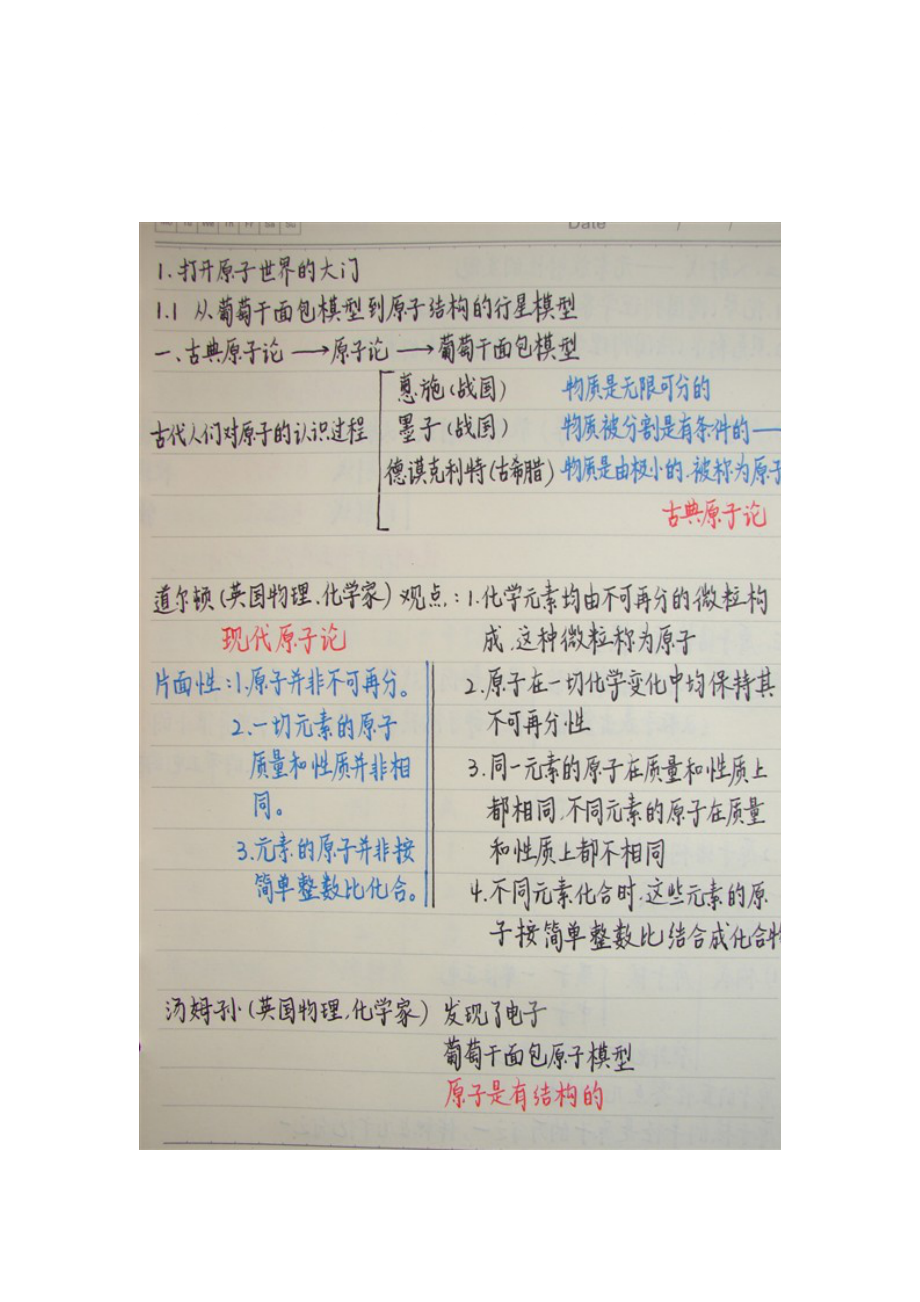 Mo Tu We Th Fr Sa Su Date / /
1.打开原子世界的大门
1.1 从葡萄干面包模型到原子结构的行星模型
一、古典原子论→原子论→葡萄干面包模型
惠施(战国) 物质是无限可分的
古代人们对原子的认识过程 墨子(战国) 物质被分割是有条件的—
德谟克利特(古希腊) 物质是由极小的.被称为原子
古典原子论
道尔顿(英国物理、化学家)观点:1.化学元素均由不可再分的微粒构
现代原子论 成,这种微粒称为原子
片面性:1.原子并非不可再分。 2.原子在一切化学变化中均保持其
2.一切元素的原子 不可再分性
质量和性质并非相 3.同一元素的原子在质量和性质上
同。 都相同,不同元素的原子在质量
3.元素的原子并非按 和性质上都不相同
简单整数比化合。 4.不同元素化合时,这些元素的原
子按简单整数比结合成化合物
汤姆孙(英国物理,化学家) 发现了电子
葡萄干面包原子模型
原子是有结构的